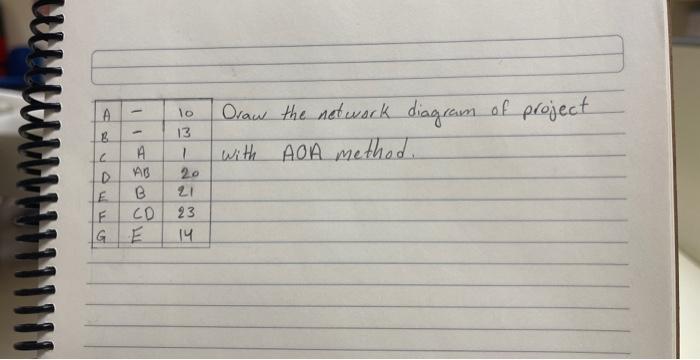 A - 10 Draw the network diagram of project
B - 13
C A 1 with AOA method.
D AB 20
E B 21
F CD 23
G E 14